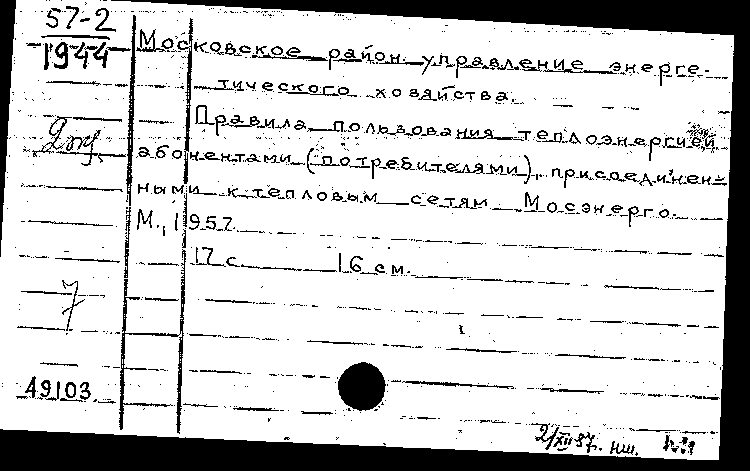 57-2
1944
Московское район. управление энерге-
тического хозяйства.
Правила пользования теплоэнергией
абонентами (потребителями), присоединен-
ными к тепловым сетям Мосэнерго.
М., 1957.
17 с. 16 см.
7
49103
2/XII 57.